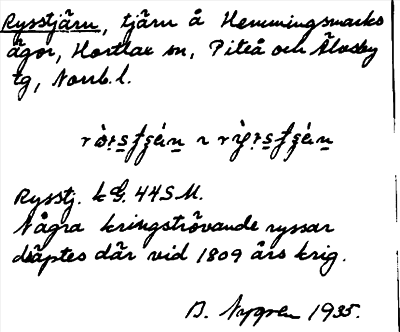 Rysstjärn, tjärn å Hemmingsmarks
ägor, Hortlax sn, Piteå och Älvsby
tg, Norrb. l.
Rysstj. k G. 44 S M.
Några kringströvande ryssar
dräptes där vid 1809 års krig.
B. Nygren 1935.